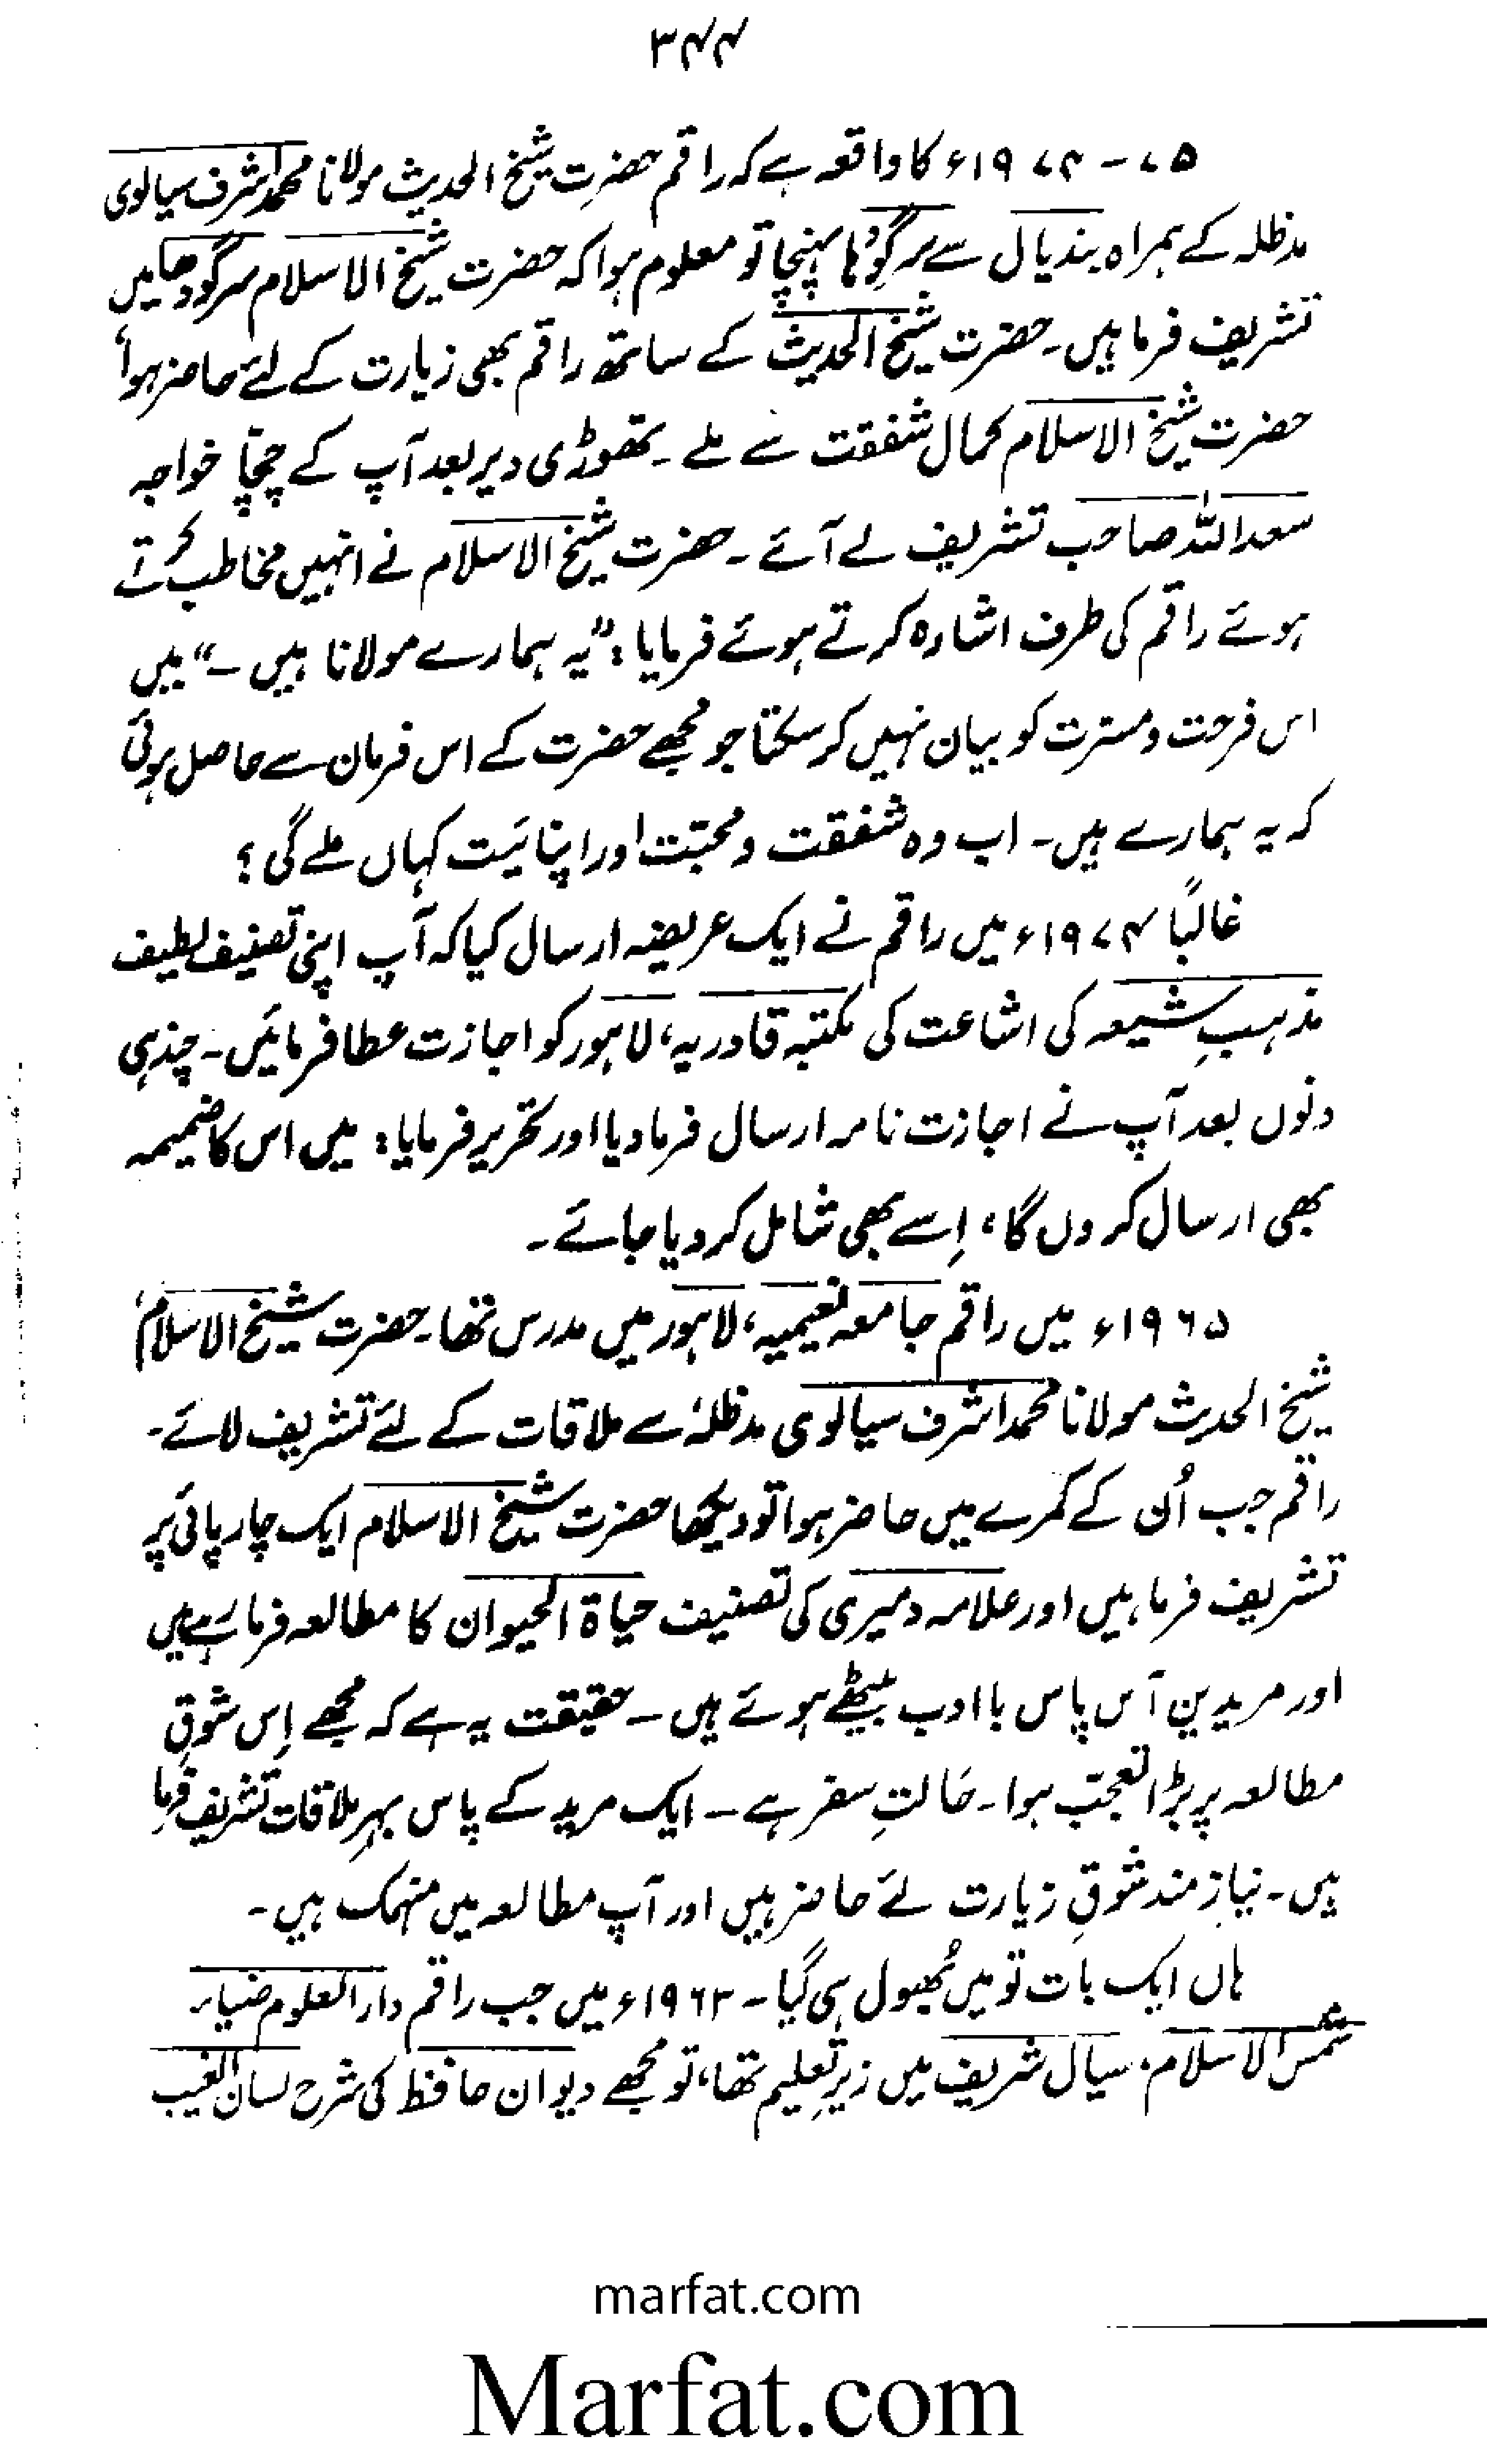 ۳۴۴
۷۵ - ۱۹۷۴ء کا واقعہ ہے کہ راقم حضرت شیخ الحدیث مولانا محمد اشرف سیالوی
مدظلہ کے ہمراہ بندیال سے سرگودہا پہنچا تو معلوم ہوا کہ حضرت شیخ الاسلام سرگودھا میں
تشریف فرما ہیں۔ حضرت شیخ الحدیث کے ساتھ راقم بھی زیارت کے لئے حاضر ہوا،
حضرت شیخ الاسلام کمال شفقت سے ملے۔ تھوڑی دیر بعد آپ کے چچا خواجہ
سعد اللہ صاحب تشریف لے آئے۔ حضرت شیخ الاسلام نے انہیں مخاطب کرتے
ہوئے راقم کی طرف اشارہ کرتے ہوئے فرمایا: "یہ ہمارے مولانا ہیں۔" میں
اس فرحت و مسرّت کو بیان نہیں کر سکتا جو مجھے حضرت کے اس فرمان سے حاصل ہوئی
کہ یہ ہمارے ہیں۔ اب وہ شفقت و محبّت اور اپنائیت کہاں ملے گی؟
غالبًا ۱۹۷۴ء میں راقم نے ایک عریضہ ارسال کیا کہ آپ اپنی تصنیف لطیف
مذہبِ شیعہ کی اشاعت کی مکتبہ قادریہ، لاہور کو اجازت عطا فرمائیں۔ چند ہی
دنوں بعد آپ نے اجازت نامہ ارسال فرما دیا اور تحریر فرمایا: میں اس کا ضمیمہ
بھی ارسال کروں گا، اِسے بھی شامل کر دیا جائے۔
۱۹۶۵ء میں راقم جامعہ نعیمیہ، لاہور میں مدرس تھا۔ حضرت شیخ الاسلام،
شیخ الحدیث مولانا محمد اشرف سیالوی مدظلہٗ سے ملاقات کے لئے تشریف لائے۔
راقم جب اُن کے کمرے میں حاضر ہوا تو دیکھا حضرت شیخ الاسلام ایک چارپائی پر
تشریف فرما ہیں اور علامہ دمیری کی تصنیف حیاۃ الحیوان کا مطالعہ فرما رہے ہیں
اور مریدین آس پاس با ادب بیٹھے ہوئے ہیں۔ حقیقت یہ ہے کہ مجھے اِس شوقِ
مطالعہ پر بڑا تعجّب ہوا۔ حَالتِ سفر ہے۔ ایک مرید کے پاس بہرِ ملاقات تشریف فرما
ہیں۔ نیاز مند شوقِ زیارت لئے حاضر ہیں اور آپ مطالعہ میں منہمک ہیں۔
ہاں ایک بات تو میں بُھول ہی گیا۔ ۱۹۶۳ء میں جب راقم دار العلوم ضیاء
شمس الاسلام، سیال شریف میں زیرِ تعلیم تھا، تو مجھے دیوان حافظ کی شرح لسان الغیب
marfat.com
Marfat.com